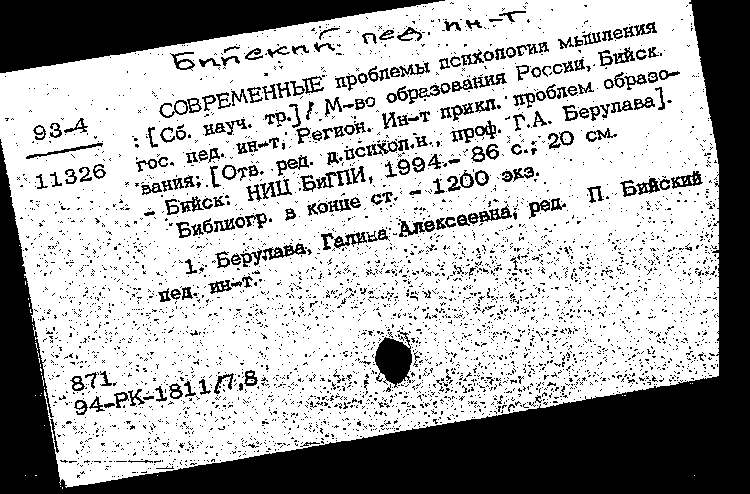 Бийский пед. ин-т.
СОВРЕМЕННЫЕ проблемы психологии мышления
93-4
11326
: [Сб. науч. тр.] / М-во образования России, Бийск.
гос. пед. ин-т, Регион. Ин-т прикл. проблем образо-
вания; [Отв. ред. д.психол.н., проф. Г.А. Берулава].
- Бийск: НИЦ БиГПИ, 1994.- 86 с.; 20 см.
Библиогр. в конце ст. - 1200 экз.
1. Берулава, Галина Алексеевна, ред. П. Бийский
пед. ин-т.
871
94-РК-1811/7,8